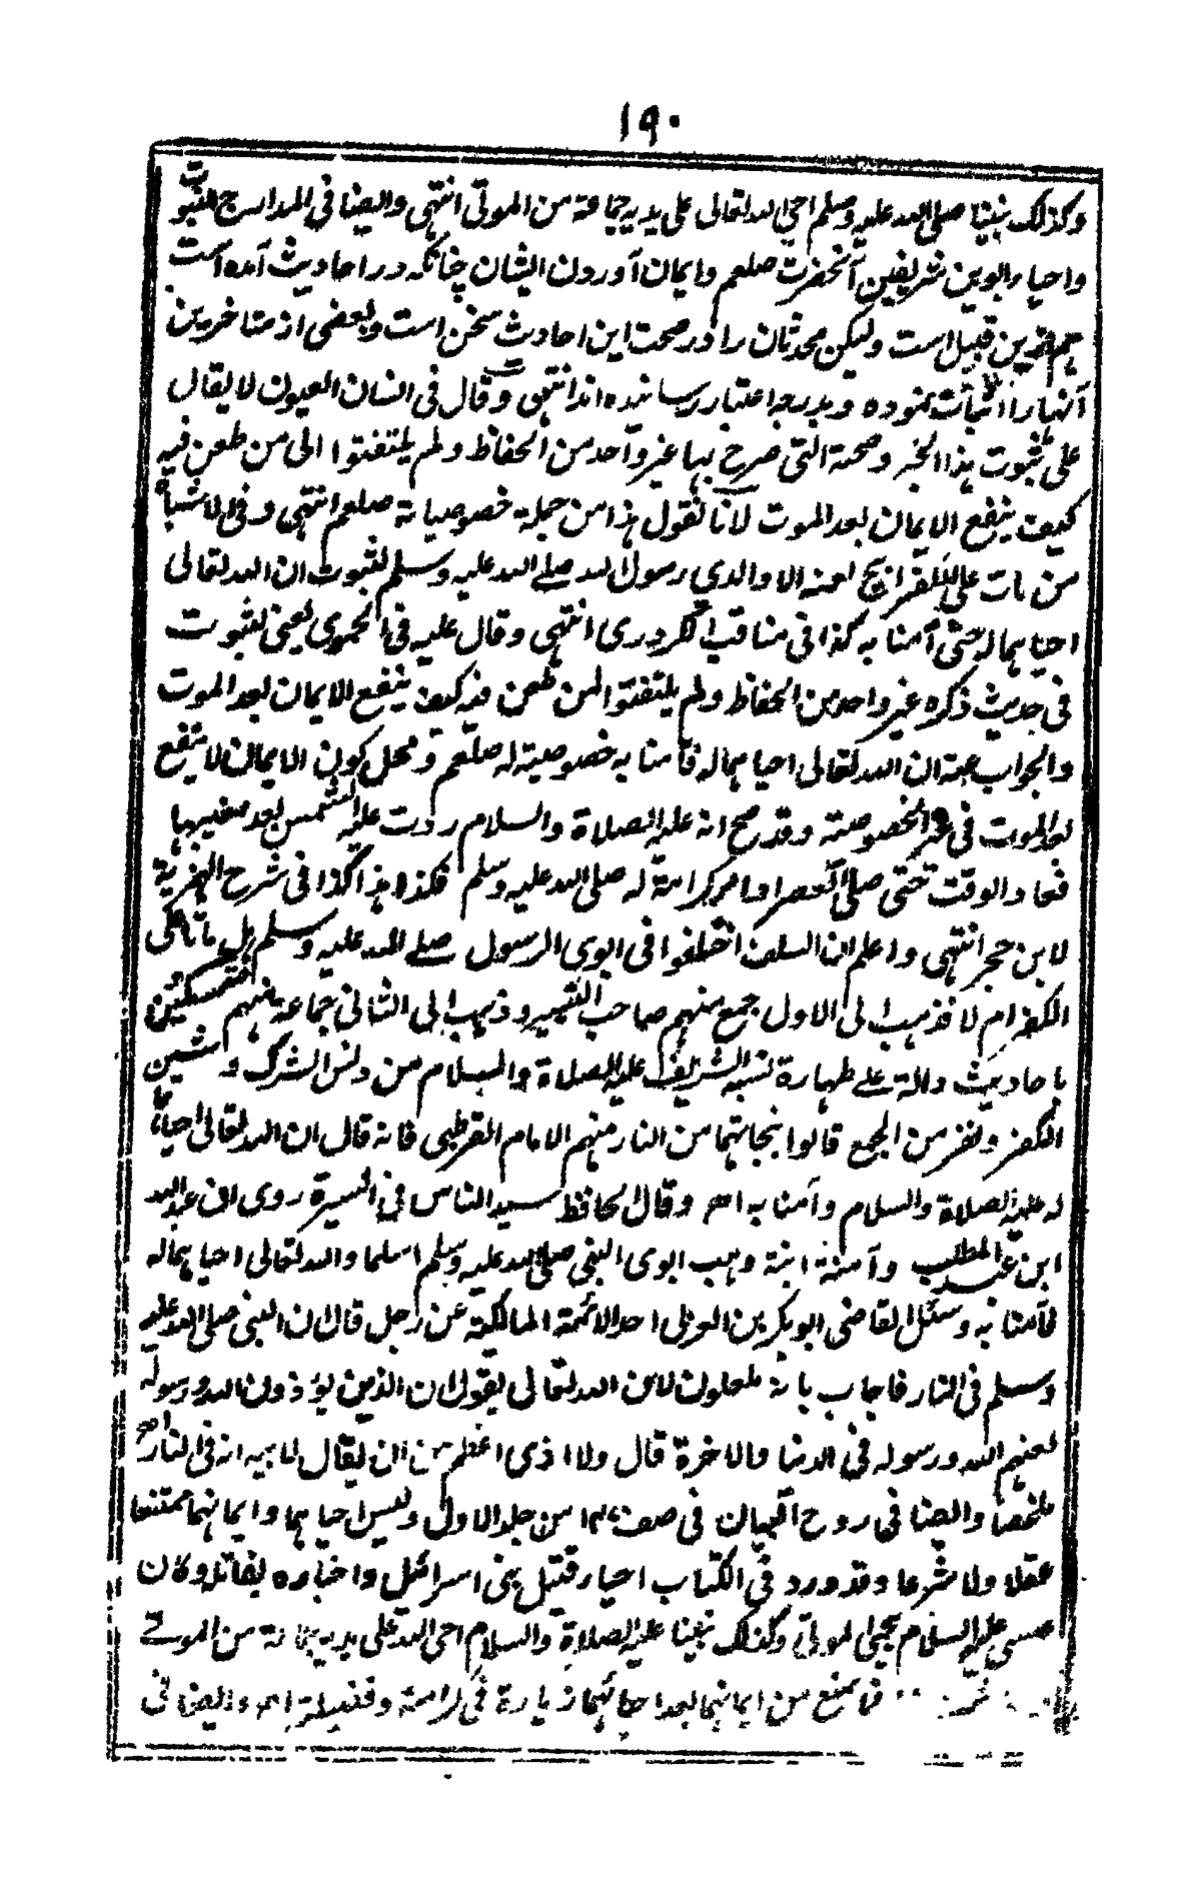 ۱۹۰
وكذلك نبينا صلى الله عليه وسلم احيى الله تعالى على يديه جماعة من الموتى انتهى وايضا فى المدارج النبوت
واحياء ابوين شريفين آنحضرت صلعم وايمان آوردن ايشان چنانكه در احاديث آمده است
هم ازين قبيل است وليكن محدثان را در صحت اين احاديث سخن است وبعضى از متاخرين
آنها را اثبات نموده وبدرجه اعتبار رسانيده اند انتهى وقال فى انسان العيون لا يقال
على ثبوت هذا الخبر وصحة التى صرح بها غير واحد من الحفاظ ولم يلتفتوا الى من طعن فيه
كيف ينفع الايمان بعد الموت لانا نقول هذا من جملة خصوصياته صلعم انتهى وفى الاشباه
من مات على الكفر ابيح لعنه الا والدي رسول الله صلے الله عليه وسلم لثبوت ان الله تعالى
احياهما له حتى آمنا به كذا فى مناقب الكردرى انتهى وقال عليه فى الحموى يعنى لثبوت
فى حديث ذكره غير واحد من الحفاظ ولم يلتفتوا لمن طعن فيه كيف ينفع الايمان بعد الموت
والجواب عنه ان الله تعالى احياهما له فآمنا به خصوصية له صلعم ومحل كون الايمان لا ينفع
بعد الموت فى غير الخصوصية وقد صح انه عليه الصلاة والسلام ردت عليه الشمس بعد مغيبها
فعاد الوقت حتى صلى العصر اداء كرامة له صلى الله عليه وسلم فكذا هذا كذا فى شرح الهمزية
لابن حجر انتهى واعلم ان السلف اختلفوا فى ابوى الرسول صلے الله عليه وسلم هل ماتا على
الكفر ام لا فذهب الى الاول جمع منهم صاحب التيسير وذهب الى الثانى جماعة منهم متمسكين
باحاديث دالة على طهارة نسبه الشريف عليه الصلاة والسلام من دنس الشرك وشين
الكفر ونفر من الجمع قالوا بنجاتهما من النار منهم الامام القرطبى فانه قال ان الله تعالى احياهما
له عليه الصلاة والسلام وآمنا به اھ وقال الحافظ سيد الناس فى السيرة روى ان عبد الله
ابن عبد المطلب وآمنة ابنة وهب ابوى النبى صلى الله عليه وسلم اسلما والله تعالى احياهما له
فآمنا به وسئل القاضى ابو بكر بن العربى احد الائمة المالكية عن رجل قال ان النبى صلى الله عليه
وسلم فى النار فاجاب بانه ملعون لان الله تعالى يقول ان الذين يؤذون الله ورسوله
لعنهم الله ورسوله فى الدنيا والاخرة قال ولا اذى اعظم من ان يقال لابيه انه فى النار اھ
ملخصا وايضا فى روح البيان فى صف من جلد الاول وليس احياهما وايمانهما ممتنعا
عقلا ولا شرعا وقد ورد فى الكتاب احياء قتيل بنى اسرائيل واخباره بقاتله وكان
عيسى عليه السلام يحيى الموتى وكذلك نبينا عليه الصلاة والسلام احى الله على يديه جماعة من الموتے
فما يمنع من ايمانهما بعد احيائهما زيارة فى كرامته وفضيلته اھ وايضا فى